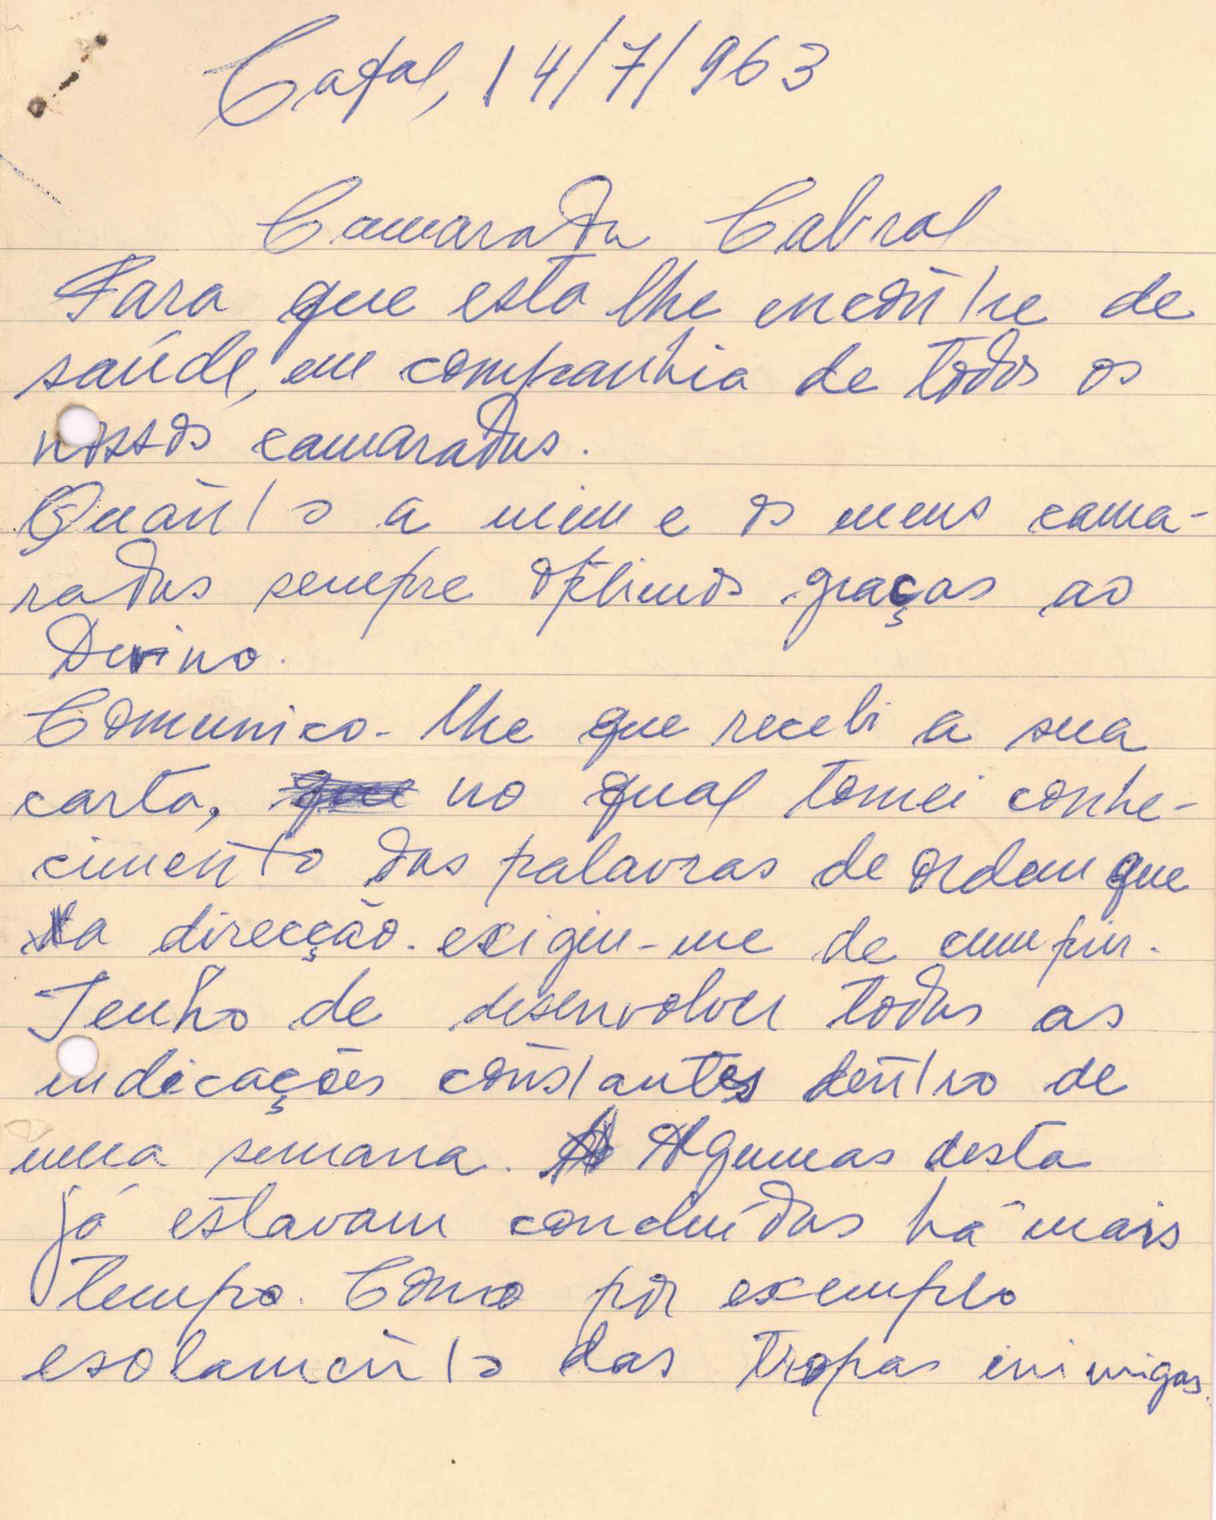 Cafal, 14/7/963
Camarada Cabral
Para que esta lhe encontre de
saúde, em companhia de todos os
nossos camaradas.
Quanto a mim e os meus cama-
radas sempre óptimos graças ao
Divino.
Comunico-lhe que recebi a sua
carta, no qual tomei conhe-
cimento das palavras de ordem que
a direcção exigiu-me de cumprir.
Tenho de desenvolver todas as
indicações constantes dentro de
uma semana. Algumas desta
já estavam concluídas há mais
tempo. Como por exemplo
esolamento das tropas inimigas.